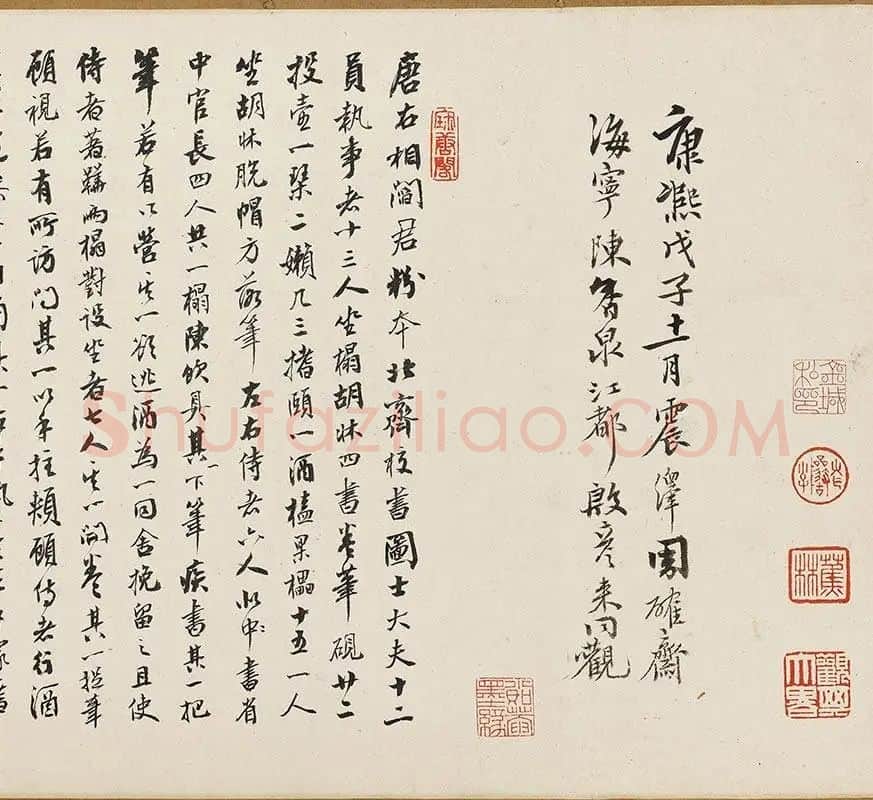 康熙戊子十一月震澤周確齋
海寧陳香泉江都殷彥來同觀
唐右相閻君粉本北齊校書圖士大夫十二
員執事者十三人坐榻胡牀四書卷筆硯廿二
投壺一琹二嬾几三搘頤一酒榼果櫑十五一人
坐胡牀脫帽方落筆左右侍者六人似書省
中官長四人共一榻陳飲具其一下筆疾書其一把
筆若有以營其一欲逃酒為一同舍挽留之且使
侍者著鞾兩榻對設坐者七人其一開卷其一捉筆
顧視若有所訪問其一以手拄頰顧侍者行酒
蕉林
觀其大略
Shufaziliao.COM